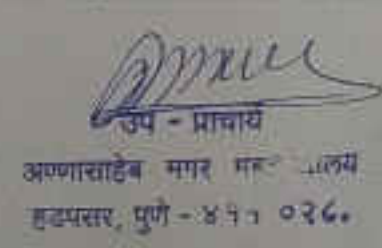 उप - प्राचार्य
अण्णासाहेब मगर
हडपसर, पुणे - ४११ ०२८.